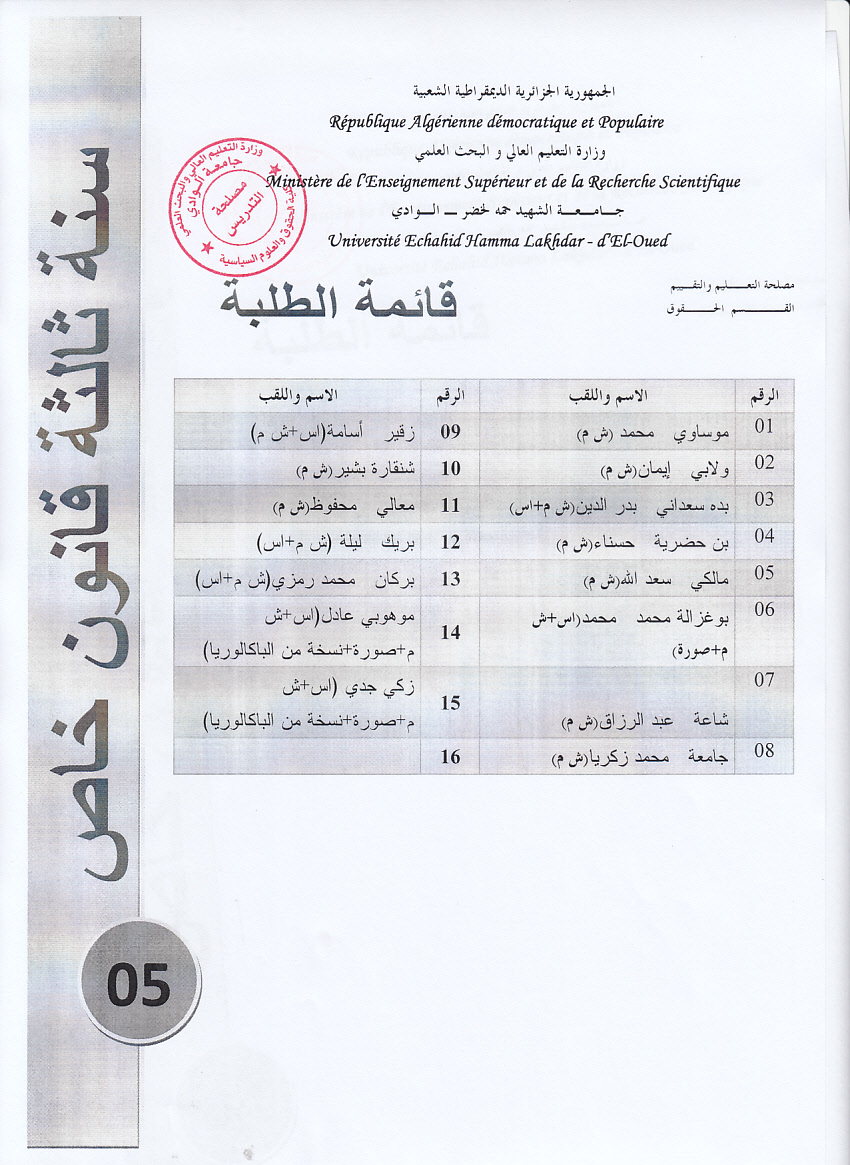 الجمهورية الجزائرية الديمقراطية الشعبية
République Algérienne démocratique et Populaire
وزارة التعليم العالي و البحث العلمي
Ministère de l'Enseignement Supérieur et de la Recherche Scientifique
جـــامـــعـــة الشهيد حمه لخضر ـــ الـــوادي
Université Echahid Hamma Lakhdar - d'El-Oued
وزارة التعليم العالي والبحث العلمي
جامعة الوادي
مصلحة
التدريس
كلية الحقوق والعلوم السياسية
مصلحة التعـــليم والتقـــييم
القـــــــسم الحـــــقوق
قائمة الطلبة
سنة ثالثة قانون خاص
05
الرقم الاسم واللقب الرقم الاسم واللقب
01 موساوي محمد (ش م) 09 زقير أسامة(اس+ش م)
02 ولابي إيمان(ش م) 10 شنقارة بشير(ش م)
03 بده سعداني بدر الدين(ش م+اس) 11 معالي محفوظ(ش م)
04 بن حضرية حسناء(ش م) 12 بريك ليلة (ش م+اس)
05 مالكي سعد الله(ش م) 13 بركان محمد رمزي(ش م+اس)
06 بوغزالة محمد محمد(اس+ش
م+صورة)
14 موهوبي عادل(اس+ش
م+صورة+نسخة من الباكالوريا)
07 شاعة عبد الرزاق(ش م)
15 زكي جدي (اس+ش
م+صورة+نسخة من الباكالوريا)
08 جامعة محمد زكريا(ش م) 16